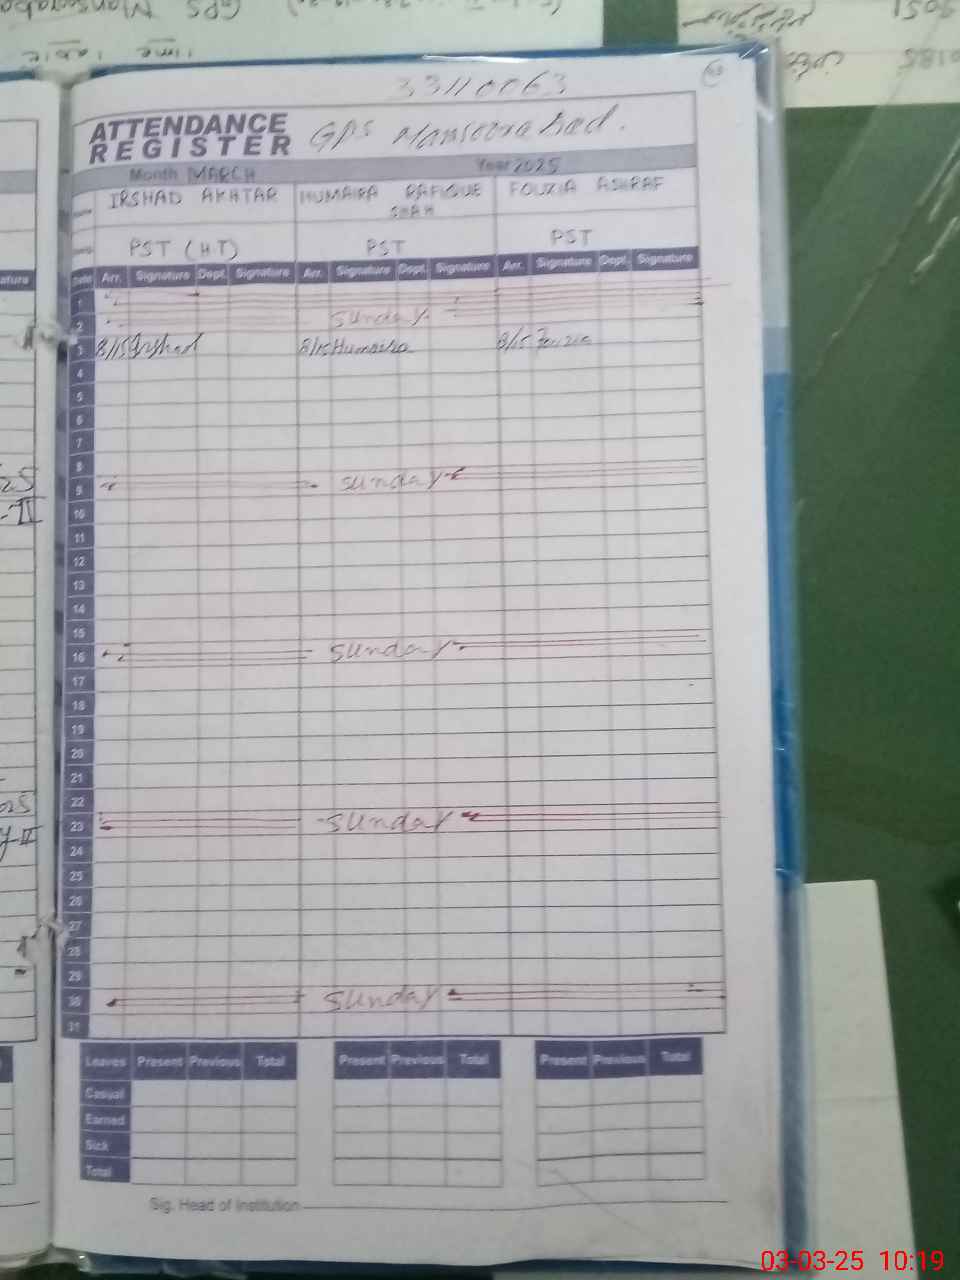 33110063
ATTENDANCE REGISTER GPS Mansoorabad.
Month MARCH Year 2025
IRSHAD AKHTAR HUMAIRA RAFIQUE SHAH FOUZIA ASHRAF
PST (HT) PST PST
Date Arr. Signature Dept. Signature Arr. Signature Dept. Signature Arr. Signature Dept. Signature
1
2 sunday.
3 8/15 Irshad 8/15 Humaira 8/15 Fouzia
4
5
6
7
8
9 sunday
10
11
12
13
14
15
16 sunday
17
18
19
20
21
22
23 sunday
24
25
26
27
28
29
30 sunday
31
Leaves Present Previous Total Present Previous Total Present Previous Total
Casual
Earned
Sick
Total
Sig. Head of Institution
03-03-25 10:19